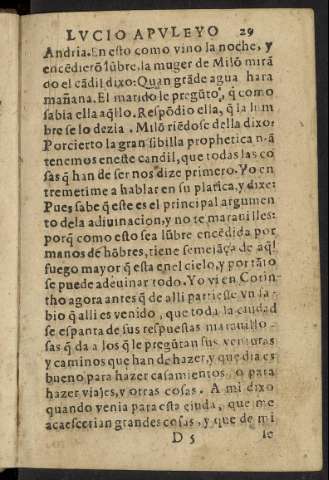 LVCIO APVLEYO 29
Andria. En esto como vino la noche, y
encẽdierõ lũbre, la muger de Milõ mirã
do el cãdil dixo: Quan grãde agua hara
mañana. El marido le pregũto, q̃ como
sabia ella aq̃llo. Respõdio ella, q̃ la lum
bre se lo dezia. Milõ riẽdose della dixo:
Por cierto la gran sibilla prophetica
tenemos eneste candil, que todas las co
sas q̃ han de ser nos dize primero. Yo en
tremetime a hablar en su platica, y dixe:
Pues sabe q̃ este es el principal argumen
to dela adiuinacion, y no te marauilles:
porq̃ como esto sea lũbre encẽdida por
manos de hõbres, tiene semejãça de aq̃l
fuego mayor q̃ esta en el cielo, y por tãto
se puede adeuinar todo. Yo vi en Corin-
tho agora antes q̃ de alli partiesse vn sa-
bio q̃ alli es venido, que toda la ciudad
se espanta de sus respuestas marauillo-
sas q̃ da a los q̃ le pregũtan sus venturas
y caminos que han de hazer, y que dia es
bueno para hazer casamientos, o para
hazer viajes, y otras cosas. A mi dixo
quando venia para esta ciuda, que me
acaescerian grandes cosas, y que de mi
D 5 se